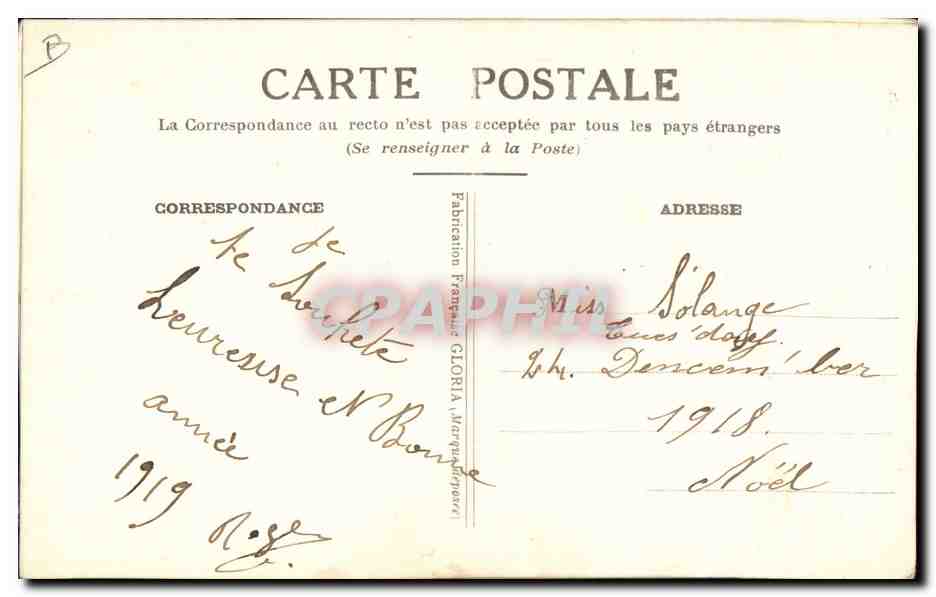 B
CARTE POSTALE
La Correspondance au recto n'est pas acceptée par tous les pays étrangers
(Se renseigner à la Poste)
CORRESPONDANCE
Je te
Souhete
heureuse et Bonne
année
1919
Fabrication Française GLORIA (Marque déposée)
ADRESSE
Miss Solange
Tues'day.
24. Dencem'ber
1918.
Noël
CPAPHIL